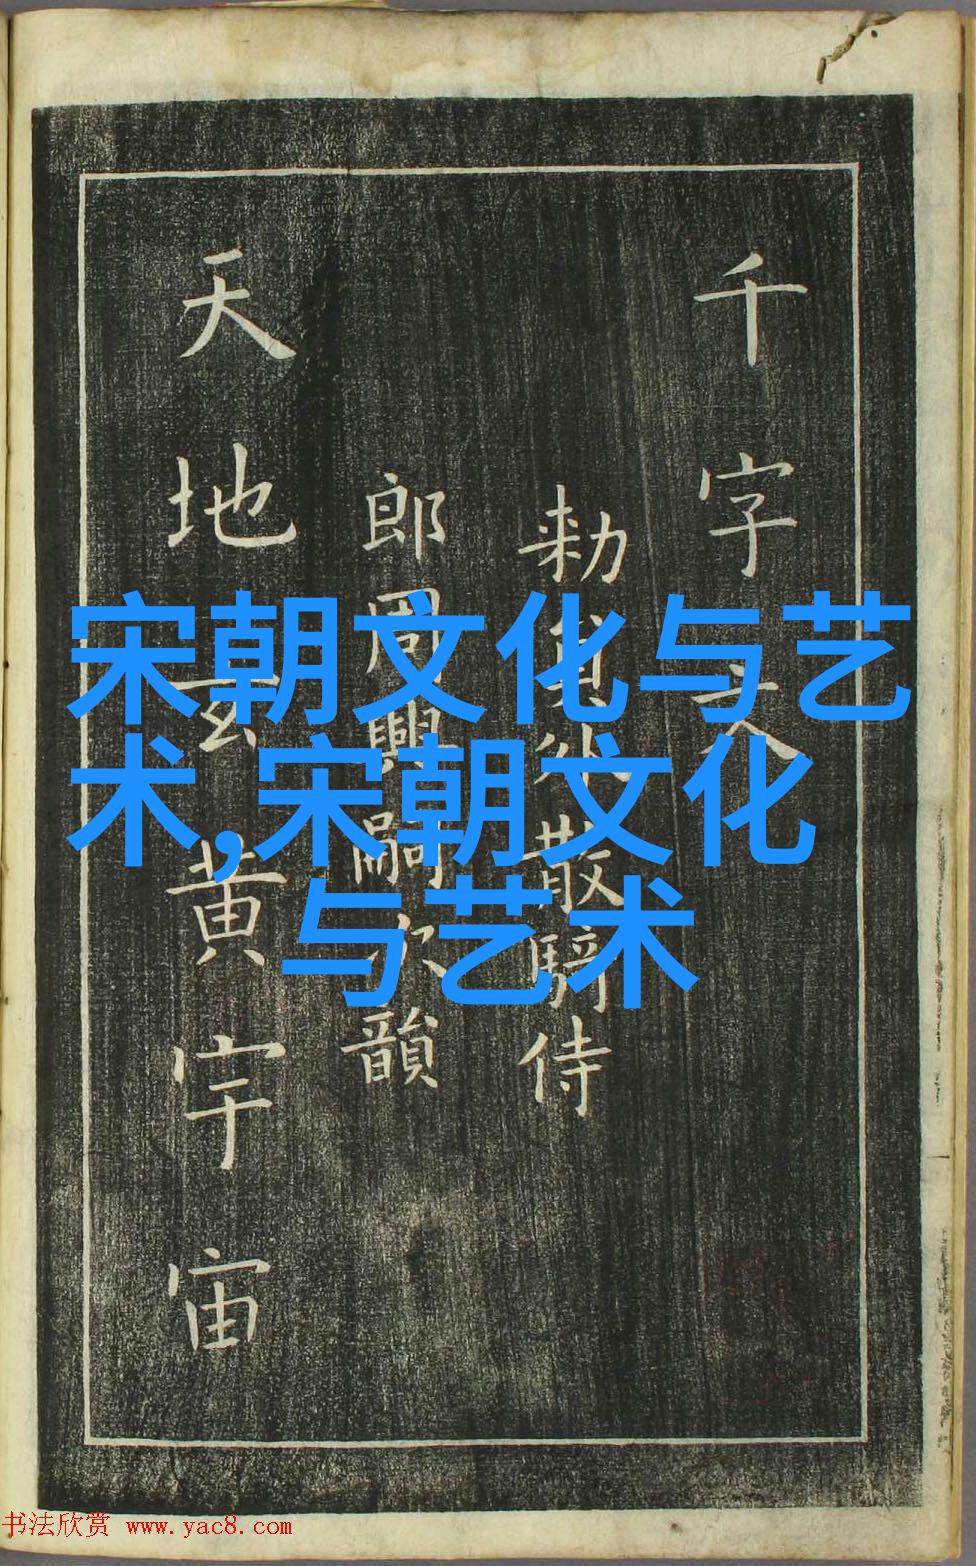 千字文
勅員外散騎侍
郎周興嗣次韻
天地玄黄宇宙
宋朝文化与艺
术,宋朝文化
与艺术
书法欣赏 www.yac8.com